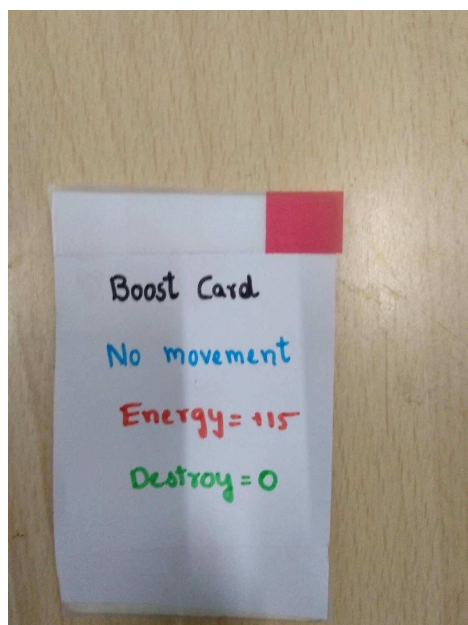 Boost Card
No movement
Energy = +15
Destroy = 0